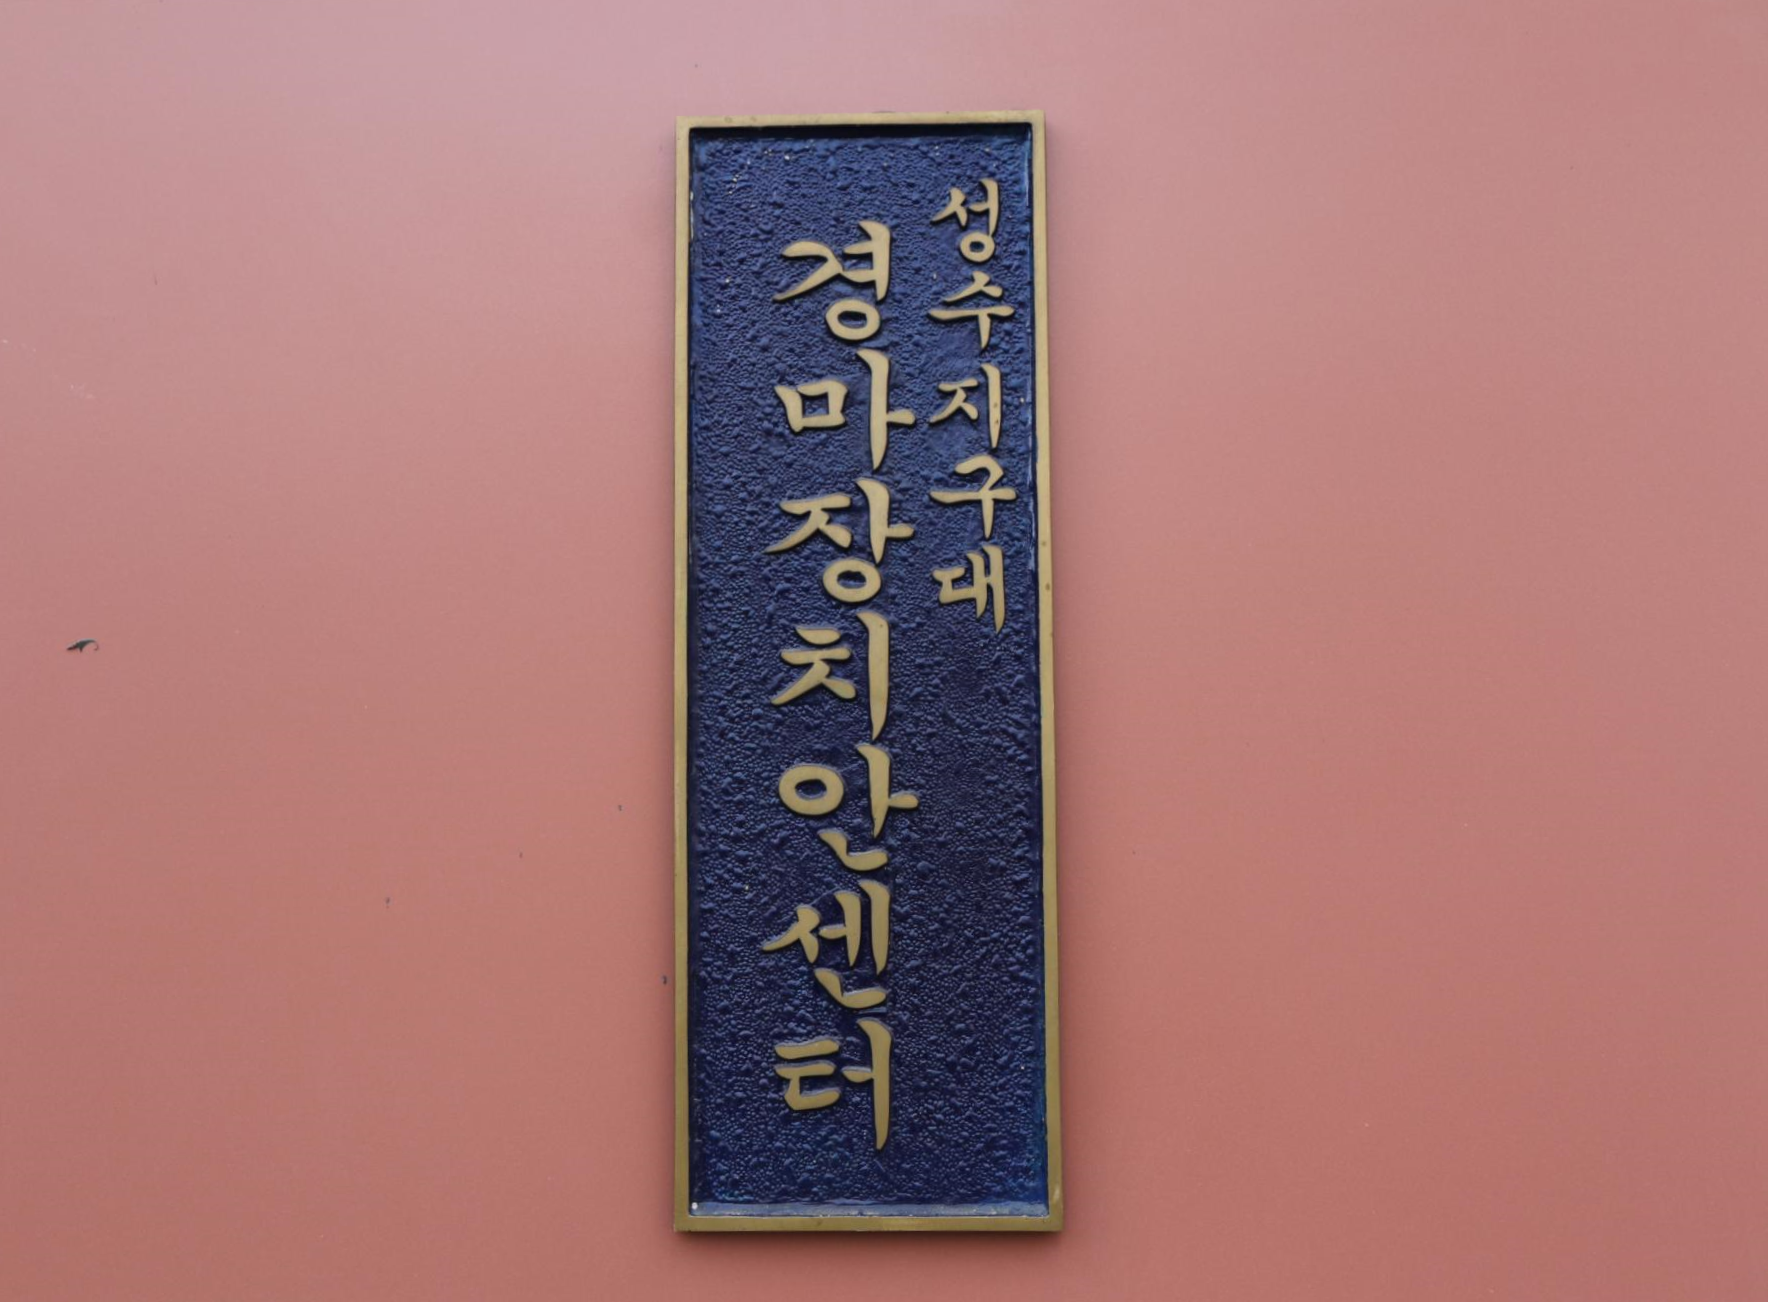 성수지구대
경마장치안센터